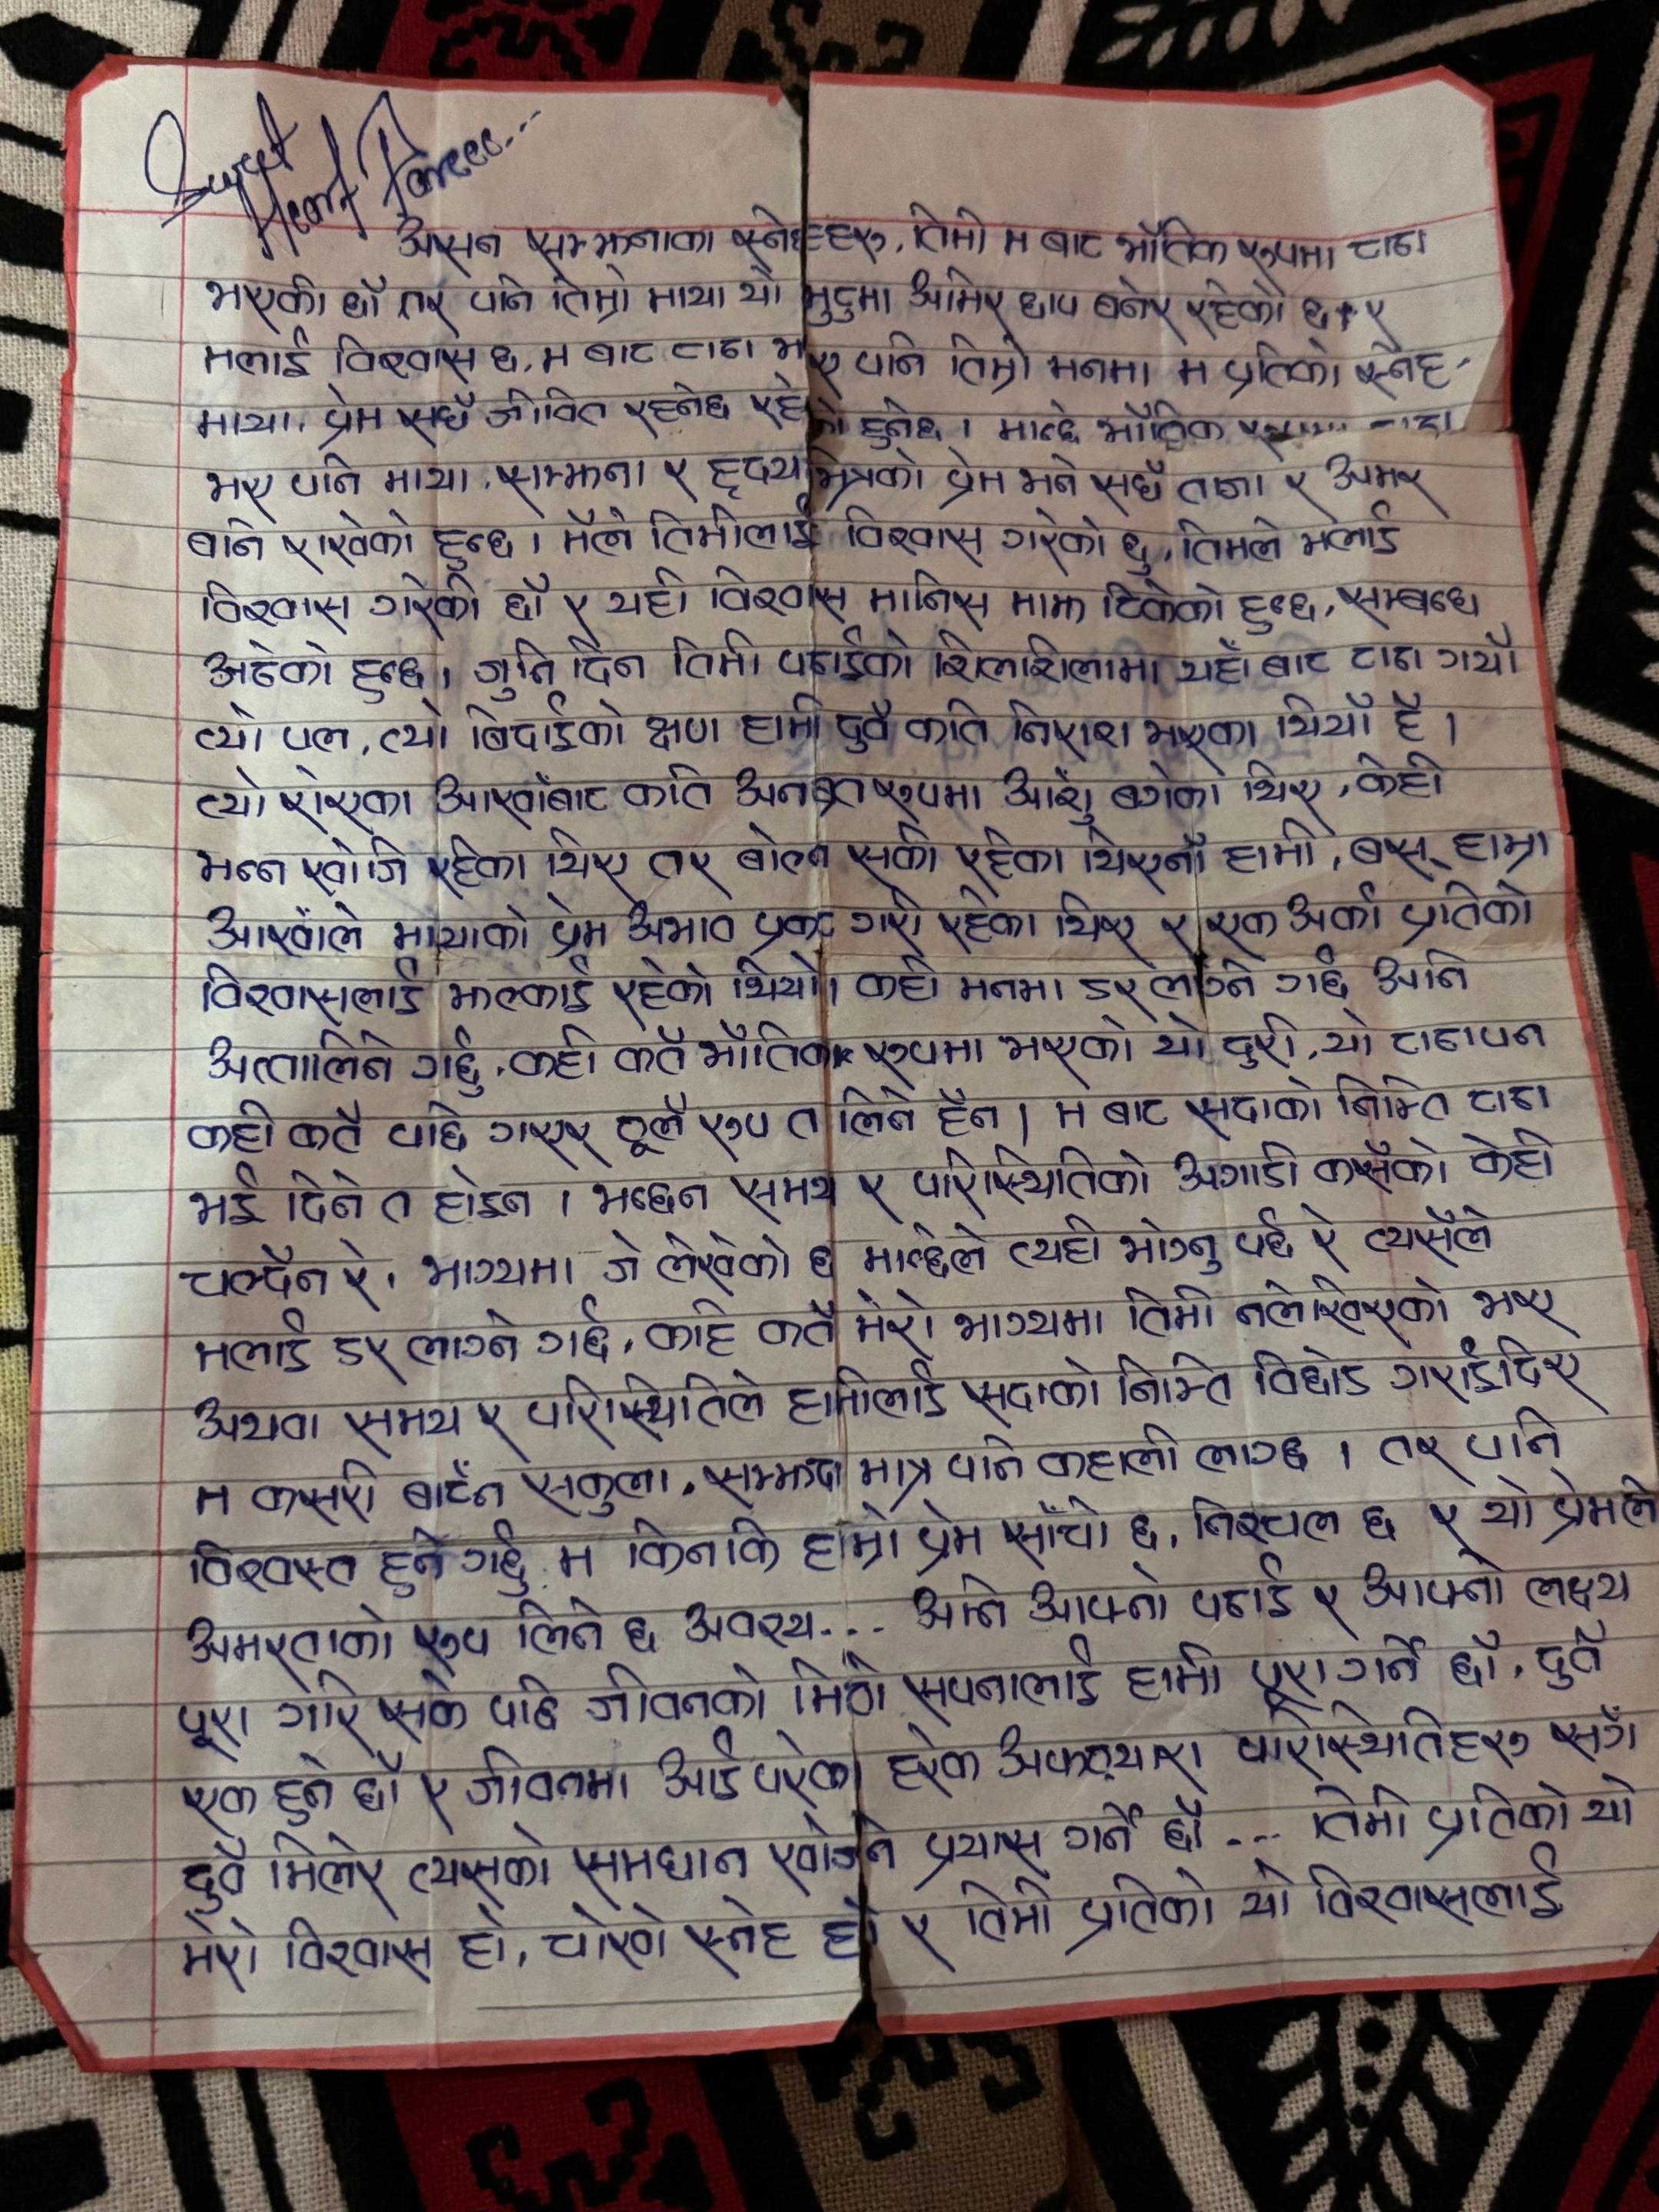 Sweet
Heart
असन सम्झनाका स्नेहहरु, तिमी म बाट भौतिक रुपमा टाढा
भएकी छौ तर पनि तिम्रो माया यो मुटुमा अमिर छाप बनेर रहेको छ र
मलाई विश्वास छ, म बाट टाढा भए पनि तिम्रो मनमा म प्रतिको स्नेह,
माया, प्रेम सधैं जीवित रहनेछ रहेको हुनेछ। मान्छे भौतिक रुपमा टाढा
भए पनि माया, सम्झना र हृदय भित्रको प्रेम भने सधैं ताजा र अमर
बनि राखेको हुन्छ। मैले तिमीलाई विश्वास गरेको छु, तिमले मलाई
विश्वास गरेकी छौ र यही विश्वास मानिस माझ टिकेको हुन्छ, सम्बन्ध
अडेको हुन्छ। जुनि दिन तिमी पढाईको शिलाशिलामा यहाँ बाट टाढा गयौ
त्यो पल, त्यो बिदाईको क्षण हामी दुवै कति निराश भएका थियौं है।
त्यो रोएका आखाँबाट कति अनब्रत रुपमा आशुं बगेका थिए, केही
भन्न खोजि रहेका थिए तर बोल्न सकी रहेका थिएनौं हामी, बस् हाम्रा
आखाँले मायाको प्रेम अभाव प्रकट गरी रहेका थिए र एक अर्का प्रतिको
विश्वासलाई झल्काई रहेको थियो। कही मनमा डर लाग्ने गर्छ अनि
अत्तालिने गर्छु, कही कतै भौतिक रुपमा भएको यो दुरी, यो टाढापन
कही कतै पछि गएर ठूलै रुप त लिने हैन। म बाट सदाको निम्ति टाढा
भई दिने त होइन। भन्छन समय र परिस्थितिको अगाडी कसैको केही
चल्दैन रे, भाग्यमा जे लेखेको छ मान्छेले त्यही भोग्नु पर्छ रे त्यसैले
मलाई डर लाग्ने गर्छ, कहि कतै मेरो भाग्यमा तिमी नलेखिएको भए
अथवा समय र परिस्थितिले हामीलाई सदाको निम्ति विछोड गराईदिए
म कसरी बाचँन सकुला, सम्झदा मात्र पनि कहाली लाग्छ। तर पनि
विश्वस्त हुने गर्छु म किनकि हाम्रो प्रेम साँचो छ, निश्चल छ र यो प्रेमले
अमरताको रुप लिने छ अवश्य... अनि आफ्नो पढाई र आफ्नो लक्ष्य
पूरा गरि सके पछि जीवनको मिठो सपनालाई हामी पूरा गर्ने छौं, दुवै
एक हुने छौं र जीवनमा आई परेका हरेक अफठ्यारा परिस्थितिहरु सगँ
दुवै मिलेर त्यसको समधान खोज्ने प्रयास गर्ने छौं... तिमी प्रतिको यो
मेरो विश्वास हो, चोखो स्नेह हो र तिमी प्रतिको यो विश्वासलाई